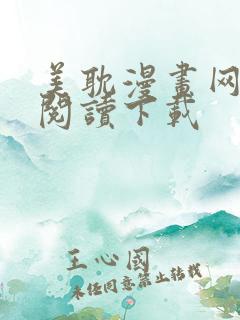 美耽漫畫网
閱讀下載
王心國
未经同意禁止转载